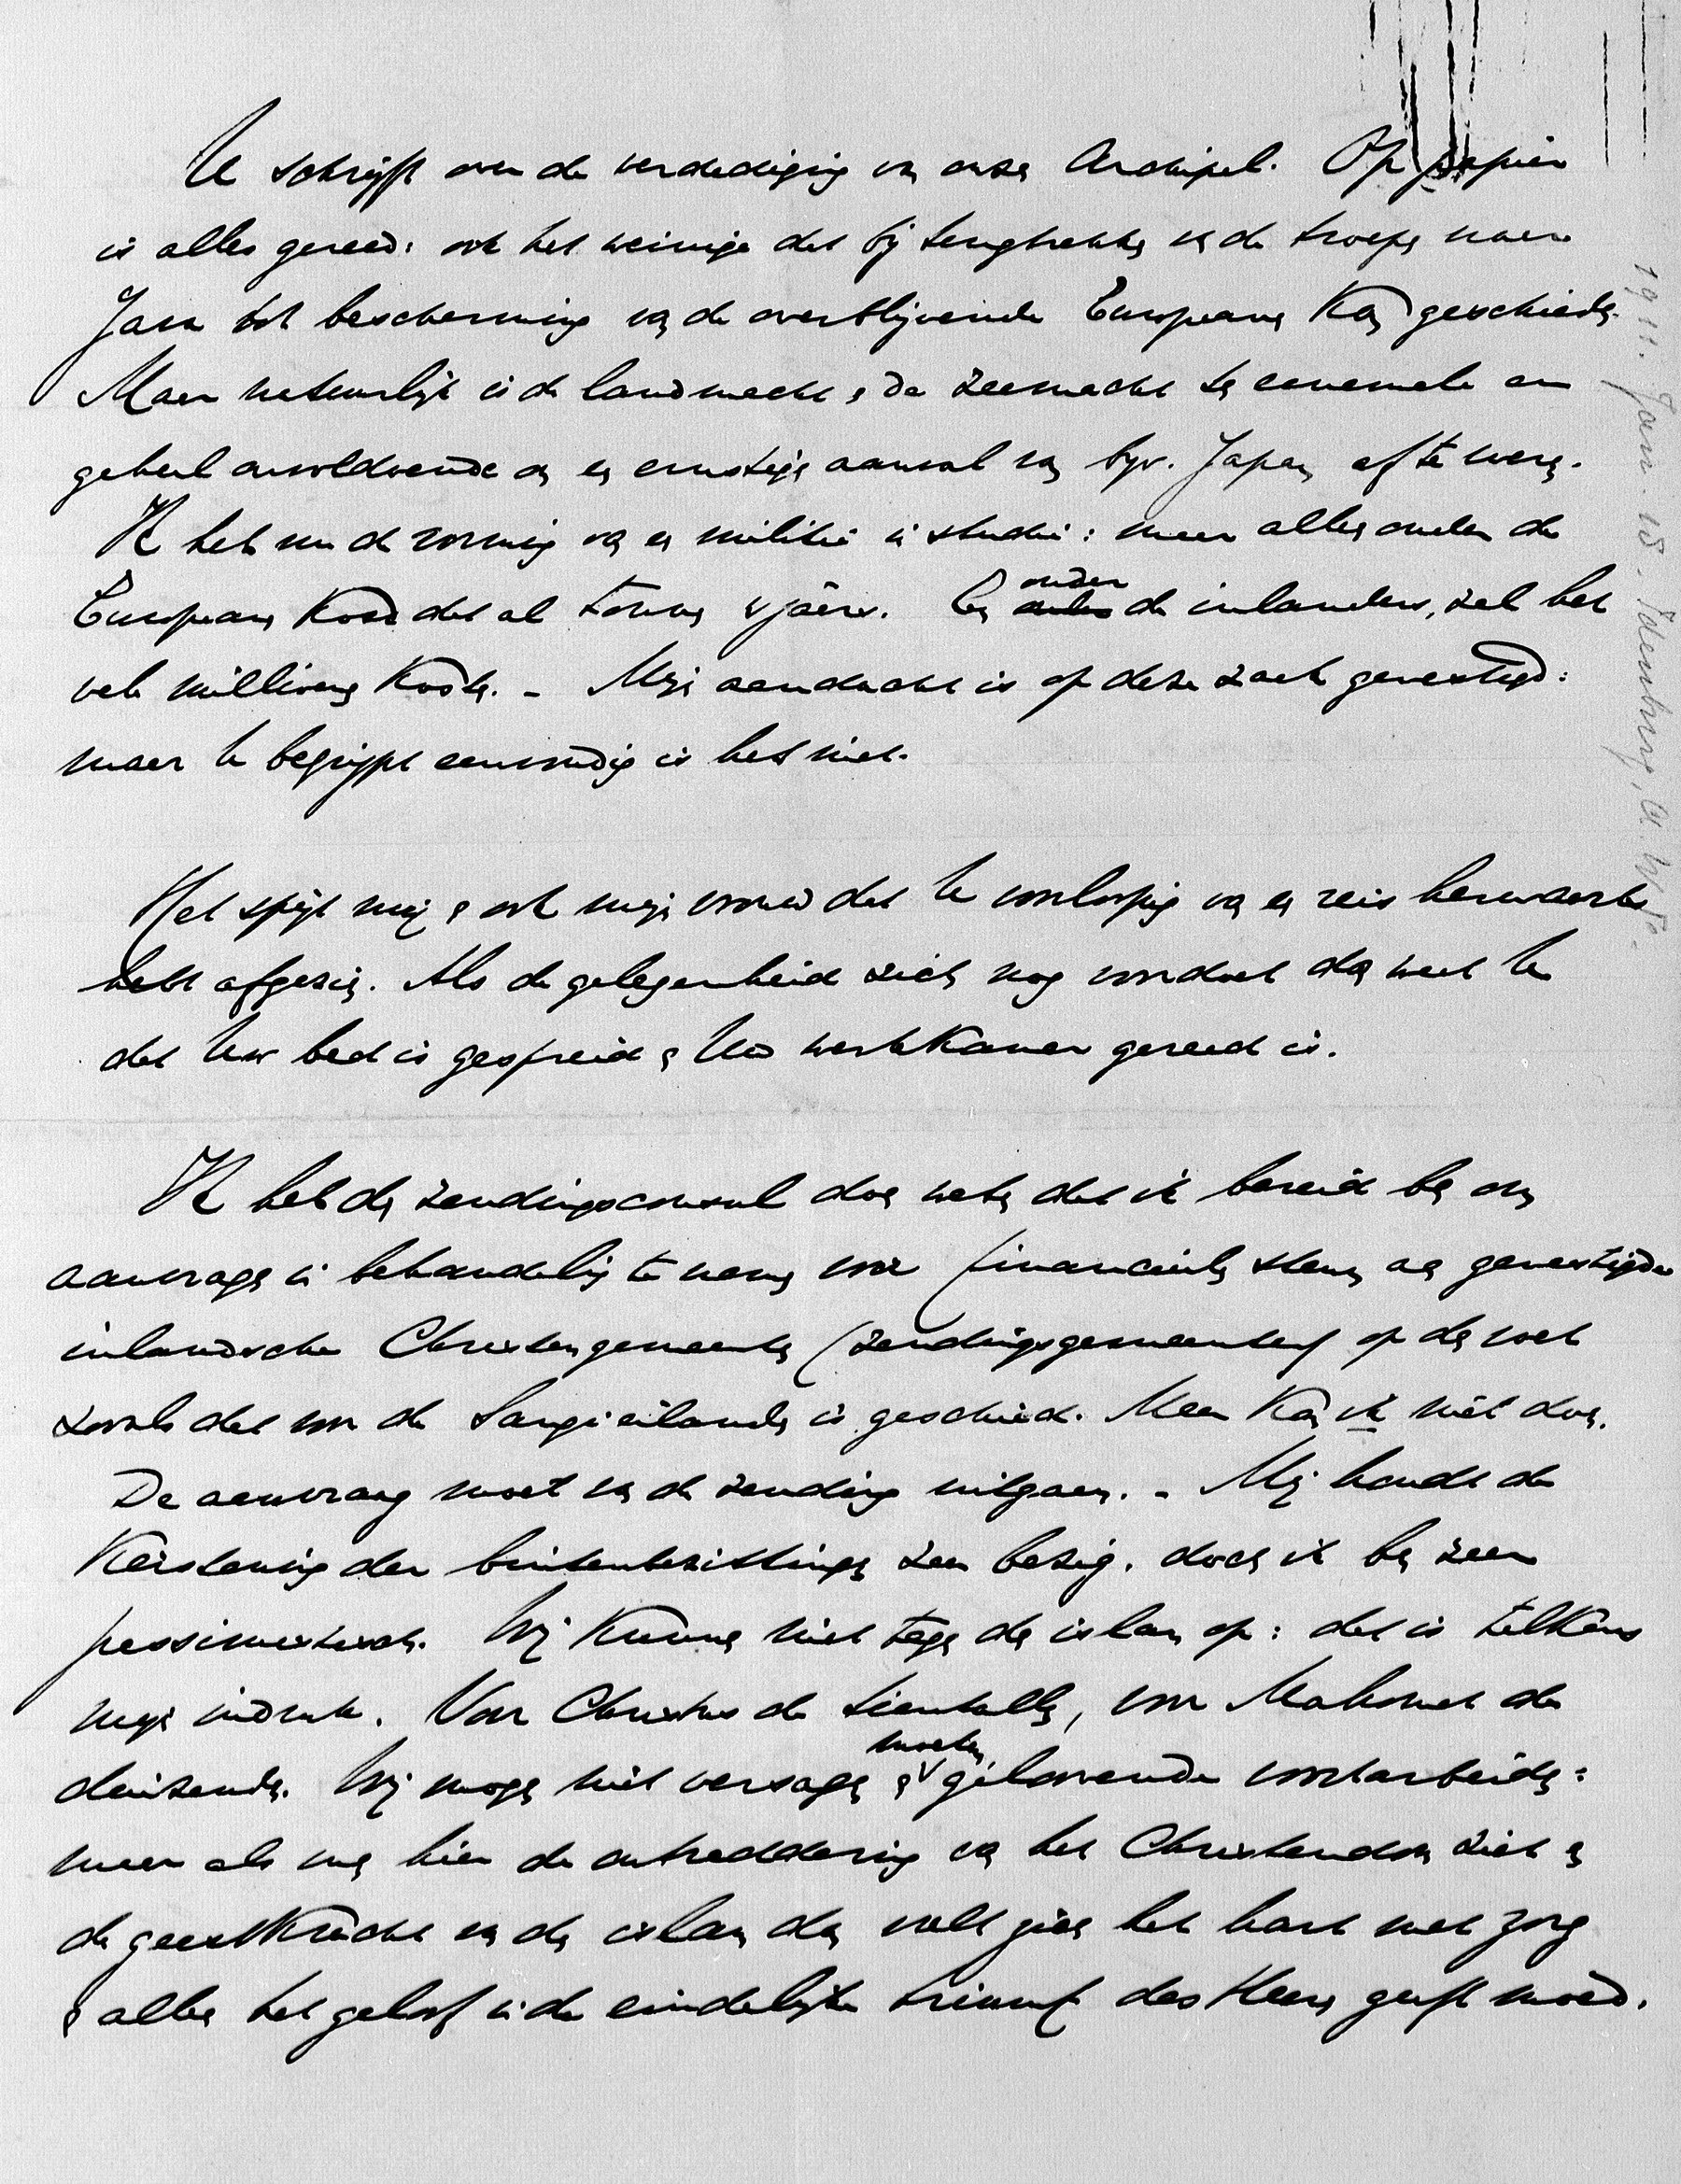 U schrijft over de verdediging van onzen Archipel. Op papier
is alles gereed: ook het weinige dat bij terugtrekken van de troepen naar
Java tot bescherming van de overblijvende Europeanen kan geschieden.
Maar natuurlijk is de landmacht en de zeemacht ten eenenmale en
geheel onvoldoende om een ernstigen aanval van bijv. Japan af te weren.
Ik heb nu de vorming van een militie in studie: maar alleen onder de
Europeanen kost dat al tonnen 's jaars. En onder de inlanders, zal het
vele millioenen kosten. - Mijn aandacht is op deze zaak gevestigd:
maar U begrijpt eenvoudig is het niet.
Het spijt mij en ook mijn vrouw dat U voorloopig van een reis herwaarts
hebt afgezien. Als de gelegenheid zich nog voordoet dan weet U
dat Uw bed is gespreid en Uw werkkamer gereed is.
Ik heb den zendingsconsul doen weten dat ik bereid ben om
aanvragen in behandeling te nemen voor financieelen steun aan gevestigde
inlandsche Christengemeenten (zendingsgemeenten) op den voet
zooals dat voor de Sangieilanden is geschied. Meer kan ik niet doen.
De aanvraag moet van de zending uitgaan. - Mij houdt de
Kerstening der buitenbezittingen zeer bezig. doch ik ben zeer
pessimistisch. Wij kunnen niet tegen den islam op: dat is telkens
mijn indruk. Voor Christus de tientallen, voor Mahomet de
duizenden. Wij mogen niet versagen en moeten geloovende voortarbeiden:
maar als men hier de ontreddering van het Christendom ziet en
de geestkracht van den islam dan vult zich het hart met zorg
en alleen het geloof in de eindelijke triumf des Heeren geeft moed.
1911. Jan. 15. Idenburg, A. W. F.